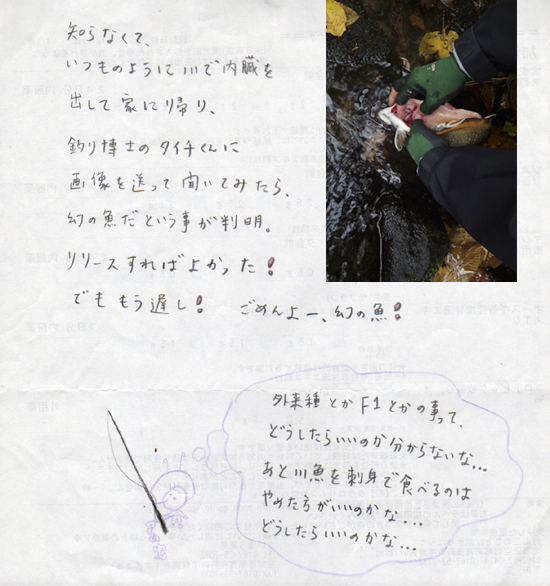 知らなくて、
いつものように川で内臓を
出して家に帰り、
釣り博士のタイチくんに
画像を送って聞いてみたら、
幻の魚だという事が判明。
リリースすればよかった!
でももう遅し!
ごめんよー、幻の魚!
外来種とかF1とかの事って、
どうしたらいいのか分からないな...
あと川魚を刺身で食べるのは
やめた方がいいのかな...
どうしたらいいのかな...